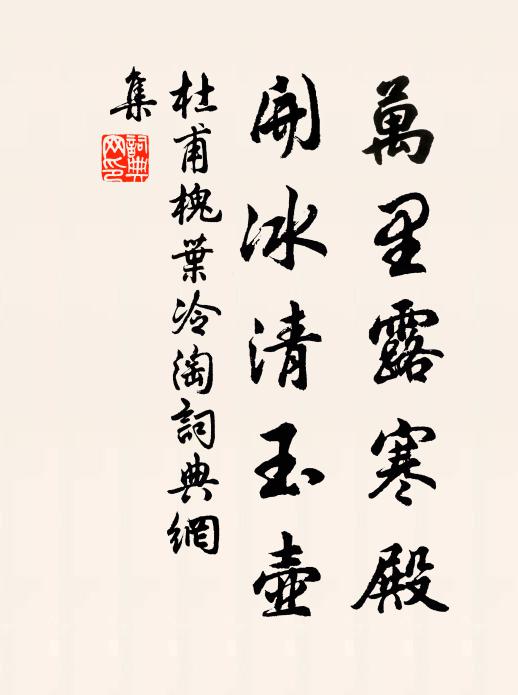 萬里露寒殿
開冰清玉壺
杜甫槐葉冷淘詞典網
集
詞典網印